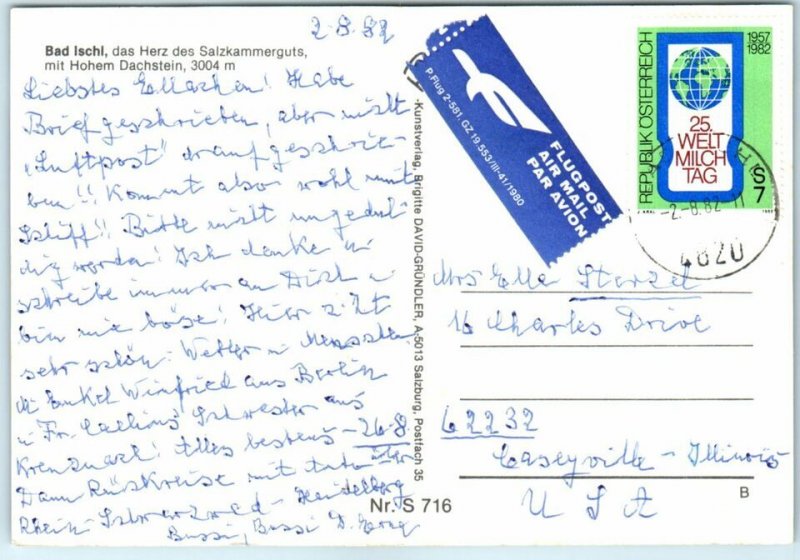 2.8.82
Bad Ischl, das Herz des Salzkammerguts,
mit Hohem Dachstein, 3004 m
Liebstes Ellachen! Habe
Brief geschrieben, aber nicht
"Luftpost" drauf geschrie-
ben!! Kommt also wohl mit
Schiff!! Bitte nicht ungedul-
dig werden! Ich denke u
schreibe immer an Dich u
bin nie böse! Hier ist
sehr schön: Wetter u Menschen
Enkel Winfried aus Berlin
u Fr. Schwester aus
Kreuznach! Alles bestens - 26.8
Dann Rückreise mit über
Rhein - Schwarzwald - Heidelberg
Bussi, Bussi D. Georg
Kunstverlag, Brigitte DAVID-GRÜNDLER, A-5013 Salzburg, Postfach 35
Nr. S 716
P.Flug 2-581, GZ 19 553/III-41/1980
FLUGPOST
AIR MAIL
PAR AVION
REPUBLIK ÖSTERREICH
1957
1982
25.
WELT
MILCH
TAG
S
7
-2.-8.82-11
4820
Mrs Ella Sterzel
16 Charles Drive
62232
Caseyville - Illinois
USA
B